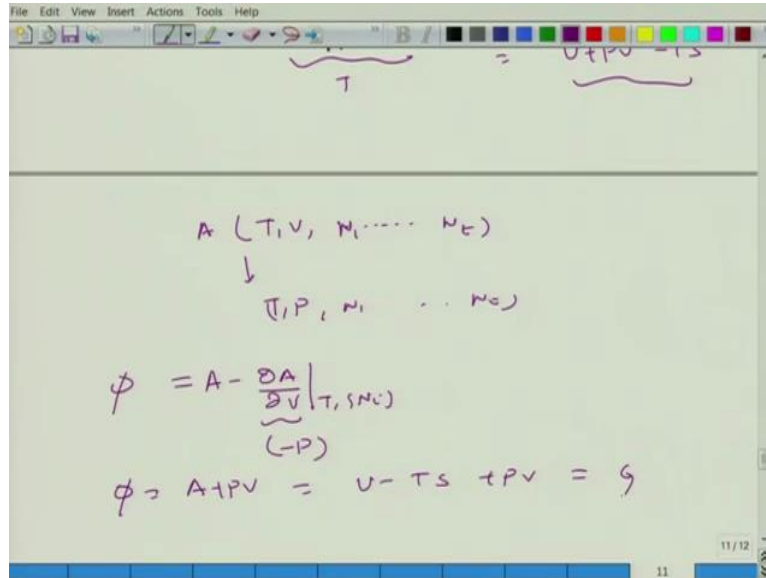 File Edit View Insert Actions Tools Help
B I
= U+PV-TS
T
A (T, V, N₁ ..... N_c)
↓
(T, P, N₁ .. N_c)
φ = A - ∂A/∂V |T, {Nᵢ}
(-P)
φ = A+PV = U-TS +PV = G
11/12
11